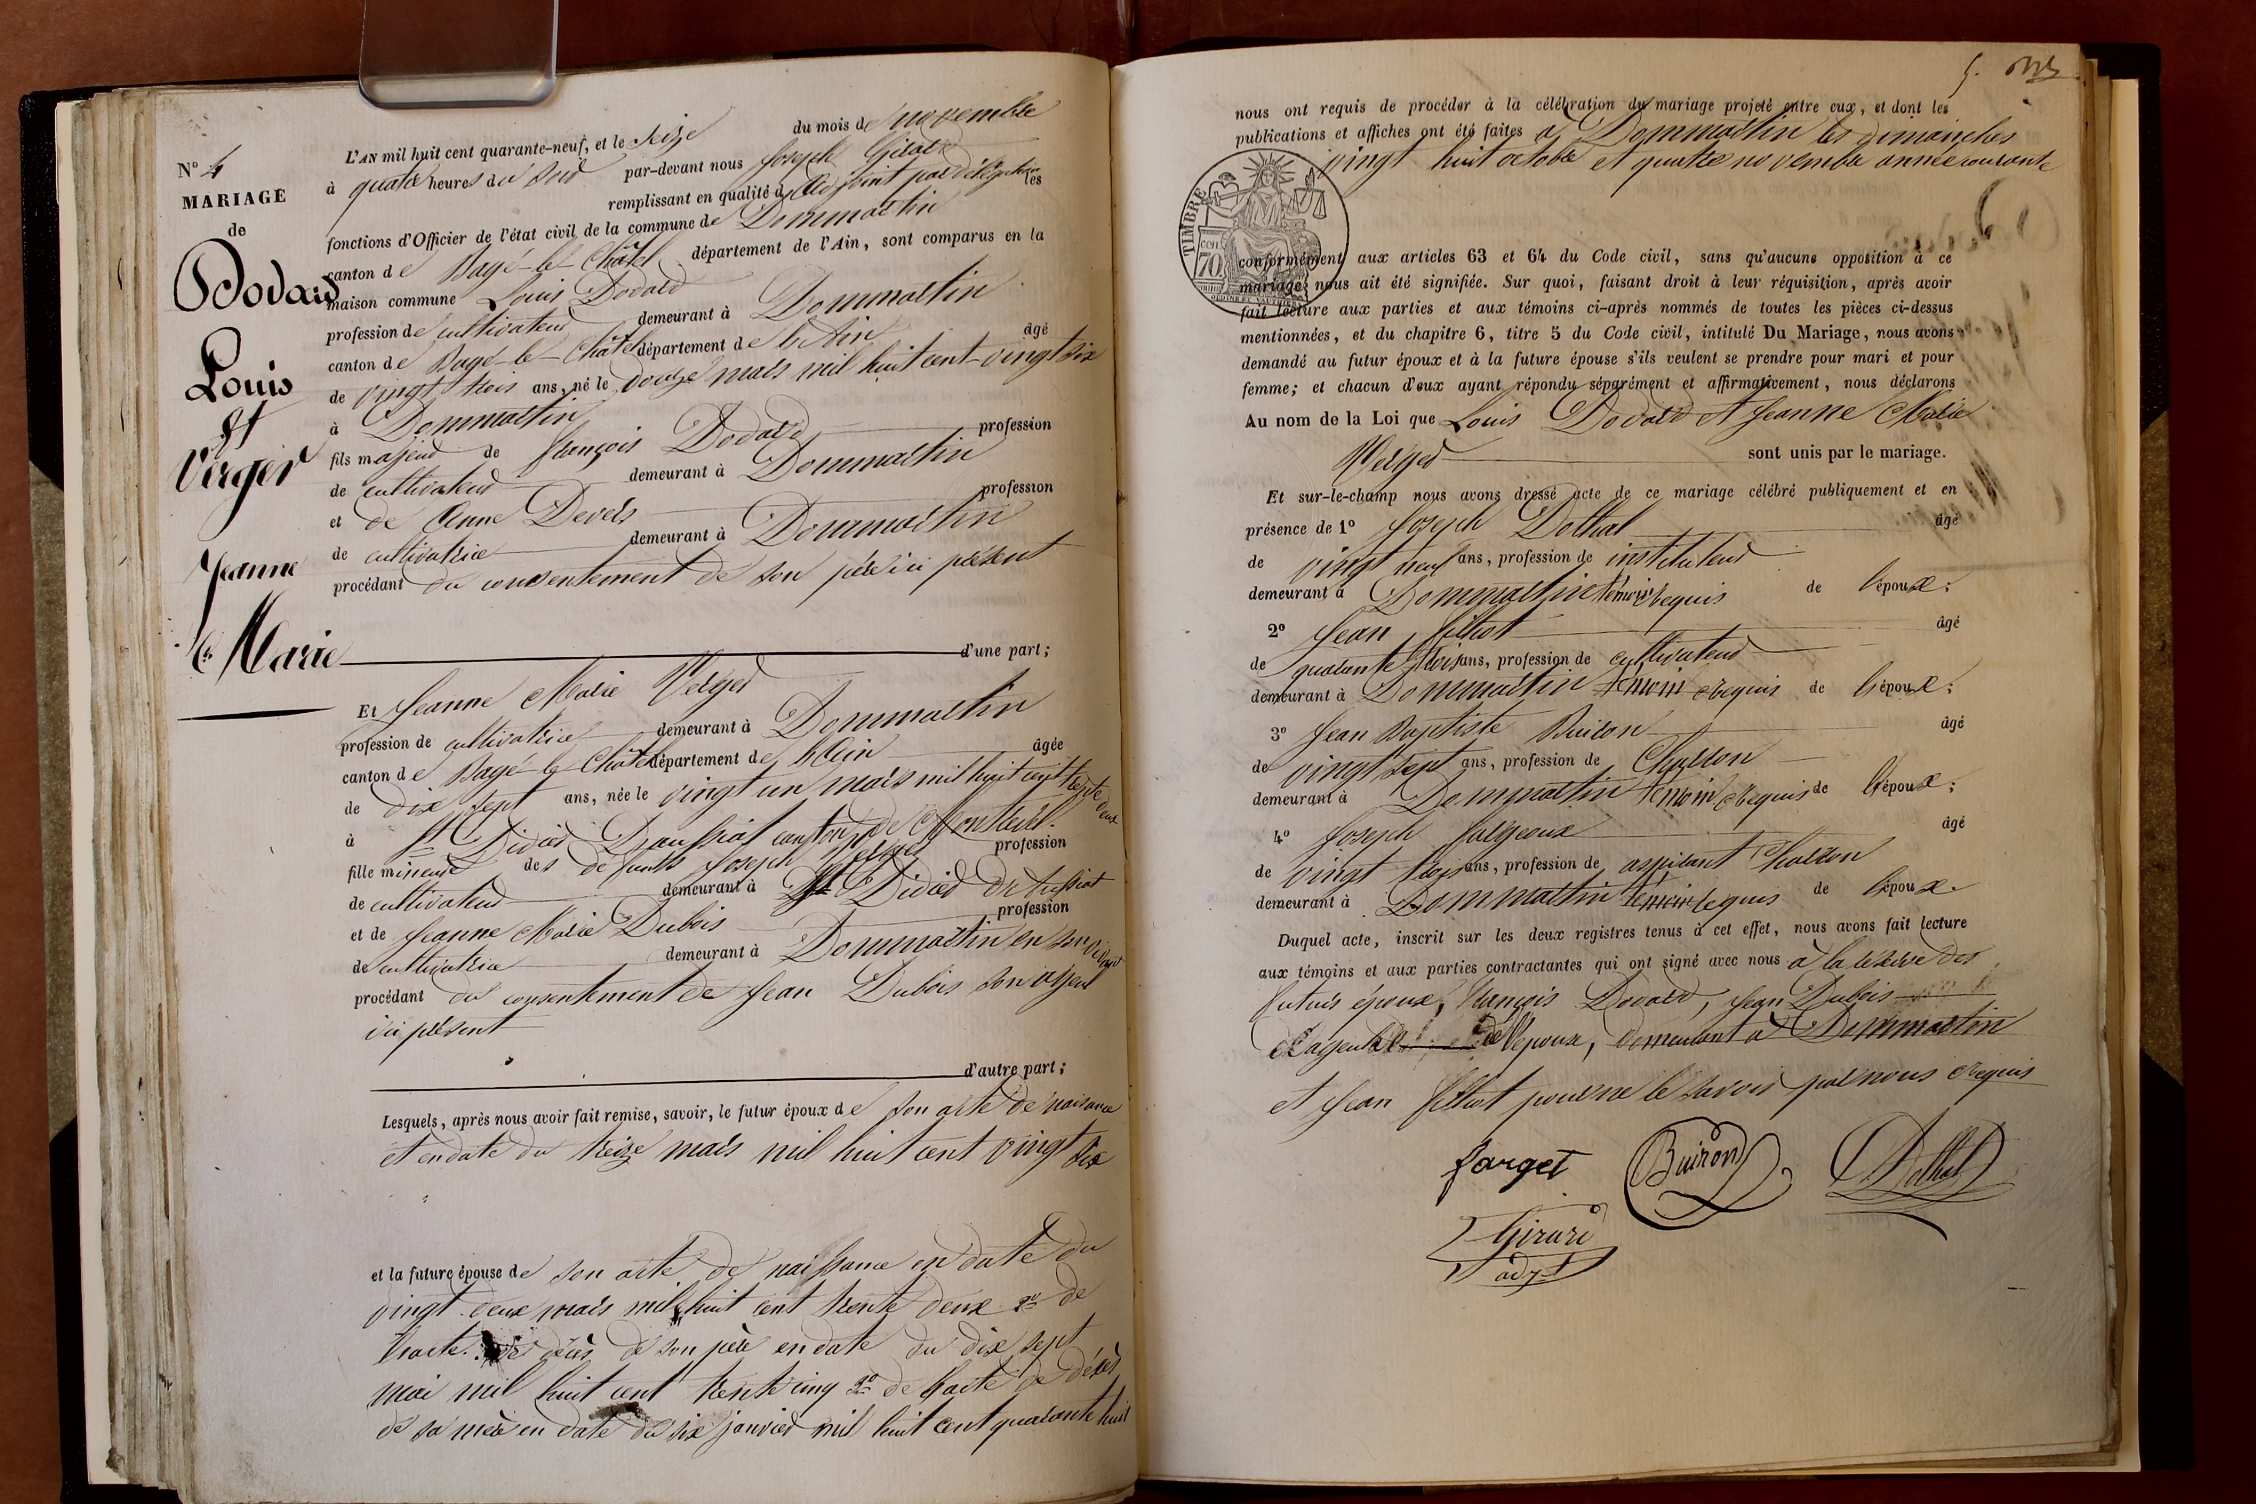 N° 4
MARIAGE
de
Dodard
Louis
et
Verger
Jeanne
Marie
L'AN mil huit cent quarante-neuf, et le Seize du mois de novembre
à quatre heures du soir par-devant nous Joseph Girard
remplissant en qualité d'adjoint par délégation les
fonctions d'Officier de l'état civil de la commune de Dommartin
canton de Bagé-le-Châtel département de l'Ain, sont comparus en la
maison commune Louis Dodard
profession de cultivateur demeurant à Dommartin
canton de Bagé-le-Châtel département de l'Ain âgé
de vingt trois ans, né le douze mars mil huit cent vingt six
à Dommartin
fils majeur de françois Dodard profession
de cultivateur demeurant à Dommartin
et de Anne Devers profession
de cultivatrice demeurant à Dommartin
procédant du consentement de son père ici présent
d'une part;
Et Jeanne Marie Verger
profession de cultivatrice demeurant à Dommartin
canton de Bagé-le-Châtel département de l'Ain âgée
de dix sept ans, née le vingt un mars mil huit cent trente deux
à St Didier D'aussiat canton de Montrevel.
fille mineure des défunts Joseph Verger profession
de cultivateur demeurant à St Didier D'aussiat
et de Jeanne Marie Dubois profession
de cultivatrice demeurant à Dommartin en son vivant
procédant du consentement de Jean Dubois son ayeul
ici présent
d'autre part;
Lesquels, après nous avoir fait remise, savoir, le futur époux de son acte de naissance
et en date du treize mars mil huit cent vingt six
et la future épouse de son acte de naissance en date du
vingt deux mars mil huit cent trente deux 2° de
l'acte de décès de son père en date du dix sept
mai mil huit cent trente cinq 3° de l'acte de décès
de sa mère en date du six janvier mil huit cent quarante huit
5.
nous ont requis de procéder à la célébration du mariage projeté entre eux, et dont les
publications et affiches ont été faites à Dommartin les dimanches
vingt huit octobre et quatre novembre année courante
TIMBRE
70
conformément aux articles 63 et 64 du Code civil, sans qu'aucune opposition à ce
mariage nous ait été signifiée. Sur quoi, faisant droit à leur réquisition, après avoir
fait lecture aux parties et aux témoins ci-après nommés de toutes les pièces ci-dessus
mentionnées, et du chapitre 6, titre 5 du Code civil, intitulé Du Mariage, nous avons
demandé au futur époux et à la future épouse s'ils veulent se prendre pour mari et pour
femme; et chacun d'eux ayant répondu séparément et affirmativement, nous déclarons
Au nom de la Loi que Louis Dodard et Jeanne Marie
Verger sont unis par le mariage.
Et sur-le-champ nous avons dressé acte de ce mariage célébré publiquement et en
présence de 1° Joseph Dolhat âgé
de vingt neuf ans, profession de instituteur
demeurant à Dommartin témoin requis de l'époux;
2° Jean filliot âgé
de quarante trois ans, profession de cultivateur
demeurant à Dommartin témoin requis de l'époux;
3° Jean Baptiste Buiron âgé
de vingt sept ans, profession de Charron
demeurant à Dommartin témoin requis de l'époux;
4° Joseph fargeoux âgé
de vingt trois ans, profession de aspirant Charron
demeurant à Dommartin témoin requis de l'époux.
Duquel acte, inscrit sur les deux registres tenus à cet effet, nous avons fait lecture
aux témoins et aux parties contractantes qui ont signé avec nous à la réserve des
futurs époux, françois Dodard, Jean Dubois
ayeul de l'épouse, demeurant à Dommartin
et Jean filliot pour ne le savoir par nous requis
farget Buiron Dolhat
Girard
adjt